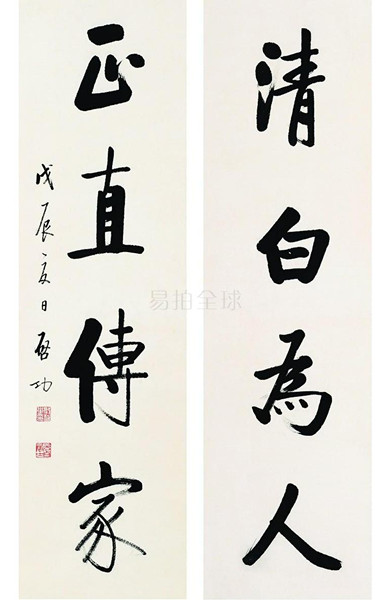 清白為人
正直傳家
戊辰夏日啓功
易拍全球